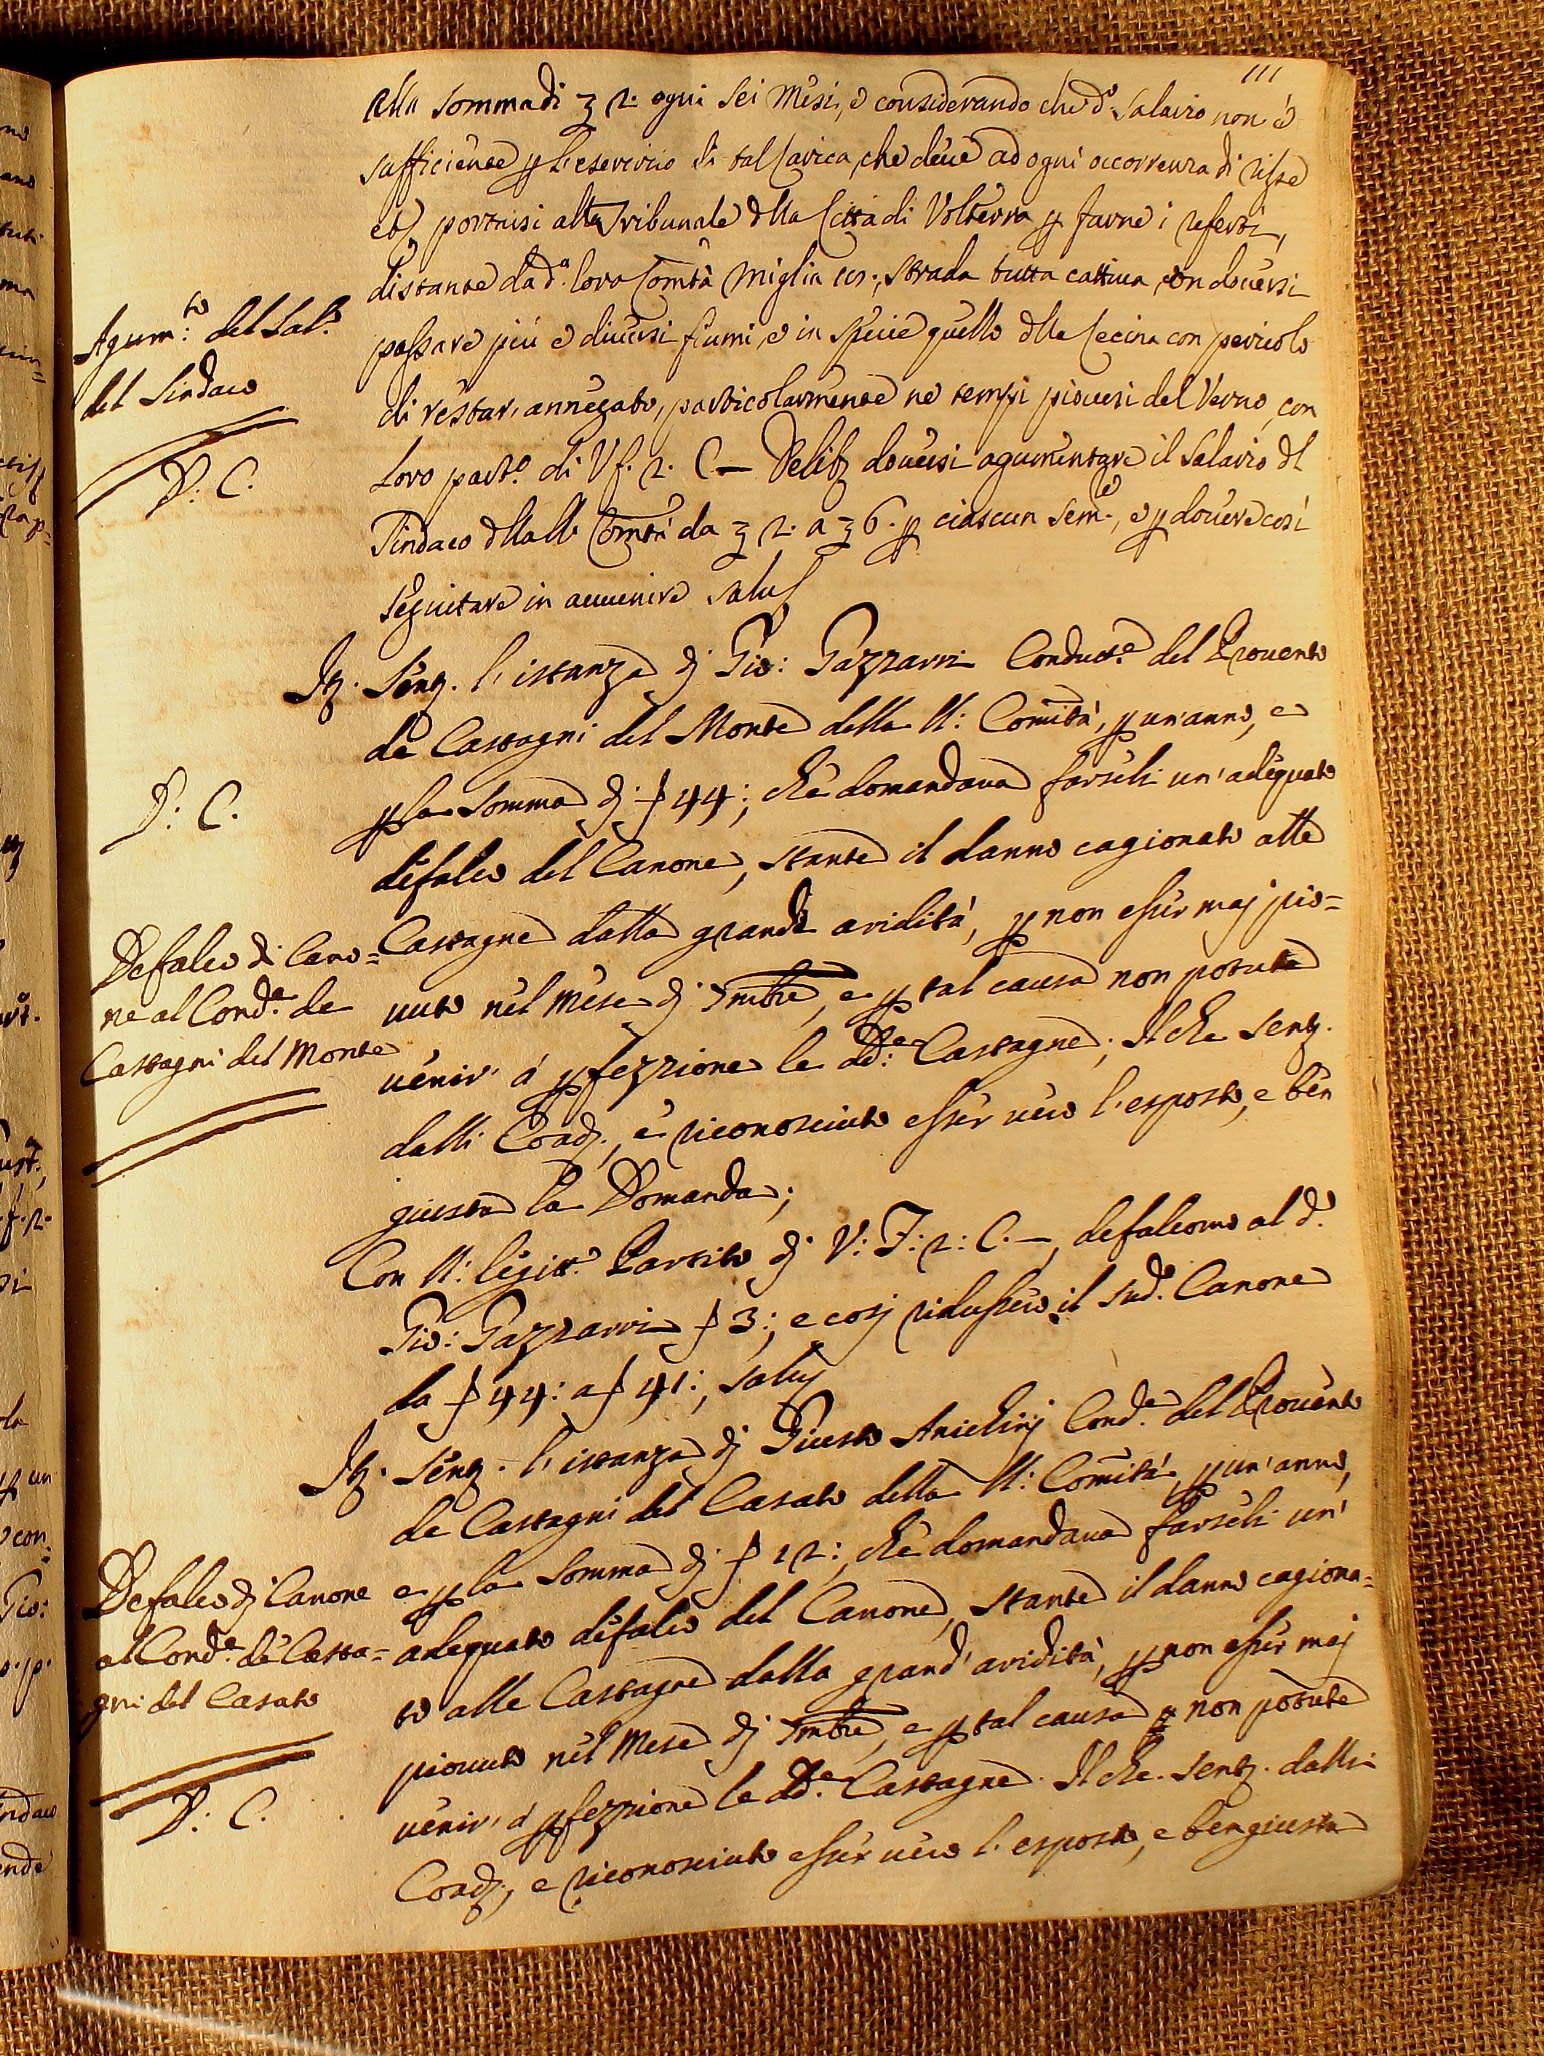 111
alla somma di ʒ 2. ogni sei Mesi, e considerando che d.º salario non è
sufficiente p l'esercizio di tal Carica, che deve ad ogni occorrenza di risse
portarsi alla Tribunale dlla Città di Volterra p farne i referti,
distante da d.ª loro Comtà Miglia strada tutta cattiva, con doversi
passare più e diversi fiumi, e in specie quello dlla Cecina con pericolo
di restar' annegato, particolarmente ne tempi piovosi del Verno, con
loro part.º di V f. 2. C — Delib doversi agumentare il Salario dl
Sindaco Comtà da ʒ 2. a ʒ 6. p ciascun Sem.e, e p dovere così
seguitare in avvenire salus
Agum.to: del Sal.º
del Sindaco
D: C.
It. Sent. l'istanza dj Gio: Gazzarri Condutt.e del Provento
de Castagni del Monte della N: Comūtà, p un'anno, e
p la somma dj ƒ 44:; che domandava farseli un'adequato
defalco del Canone, stante il danno cagionato alle
Castagne dalla grande aridità, p non esser maj pio=
vuto nel Mese dj 7mbre, e p tal causa non potute
venir' à pfezzione le dd:e Castagne; Il che sent.
dalli Coadj., e riconosciuto esser vero l'esposto, e ben
giusta la Domanda;
Con N: legitt.º Partito dj V: F: 2: C. —, defalcorno al d.º
Gio: Gazzarri ƒ 3:; e cosj ridussero il sud.º Canone
da ƒ 44: a ƒ 41:, salus
D: C.
Defalco di Cano=
ne al Cond.e de
Castagni del Monte
It. Sent. l'istanza dj Giusto Anichinj Cond.e del Provento
de Castagni del Casato della N: Comūtà p un'anno,
e p la somma dj ƒ 12:, che domandava farseli un'
adequato defalco del Canone, stante il danno cagiona=
to alle Castagne dalla grand'aridità, p non esser maj
piovuto nel Mese dj 7mbre, e p tal causa p non potute
venir' à pfezzione le dd.e Castagne. Il che sent. dalli
Coadj., e riconosciuto esser vero l'esposto, e ben giusta
Defalco dj Canone
al Cond.e de Casta=
gni del Casato
D: C.